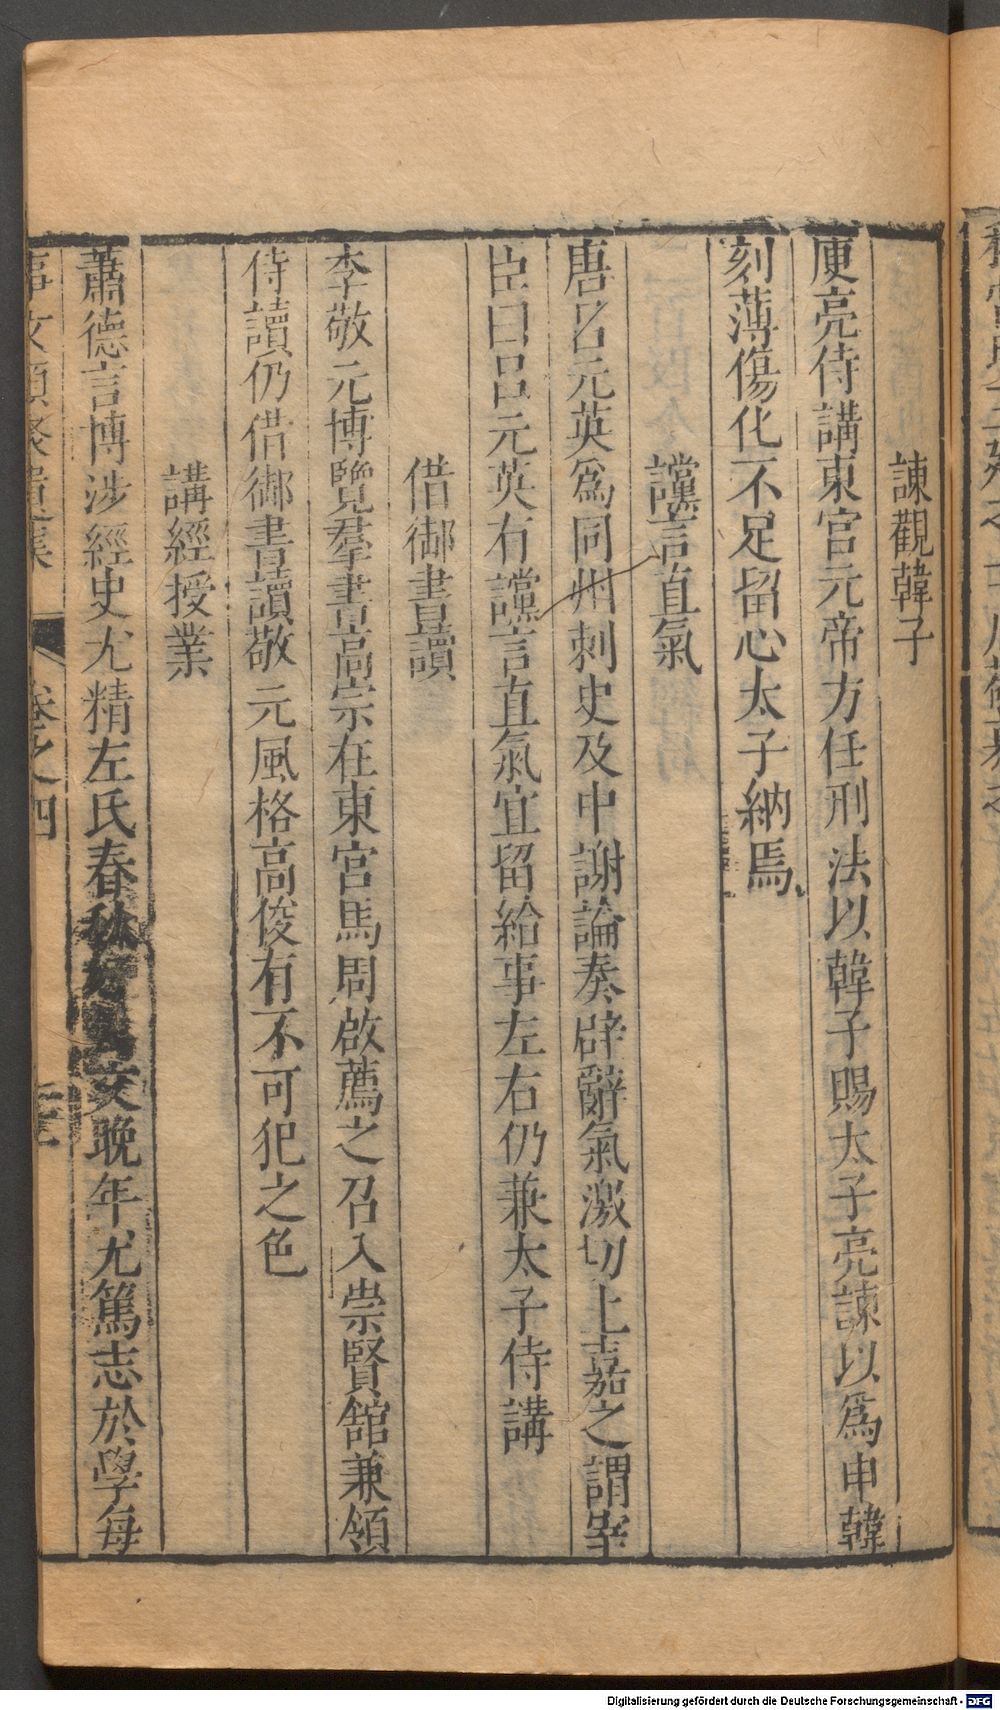 諫觀韓子
庾亮侍講東宫元帝方任刑法以韓子賜太子亮諫以爲申韓
刻薄傷化不足留心太子納焉
讜言直氣
唐呂元英爲同州刺史及中謝論奏辟辭氣激切上嘉之謂宰
臣曰呂元英有讜言直氣宜留給事左右仍兼太子侍講
借御書讀
李敬元博覽羣書高宗在東宮馬周啟薦之召入崇賢舘兼領
侍讀仍借御書讀敬元風格高俊有不可犯之色
講經授業
蕭德言博涉經史尤精左氏春秋好文晚年尤篤志於學每
事文類聚遺集 卷之四
Digitalisierung gefördert durch die Deutsche Forschungsgemeinschaft - DFG